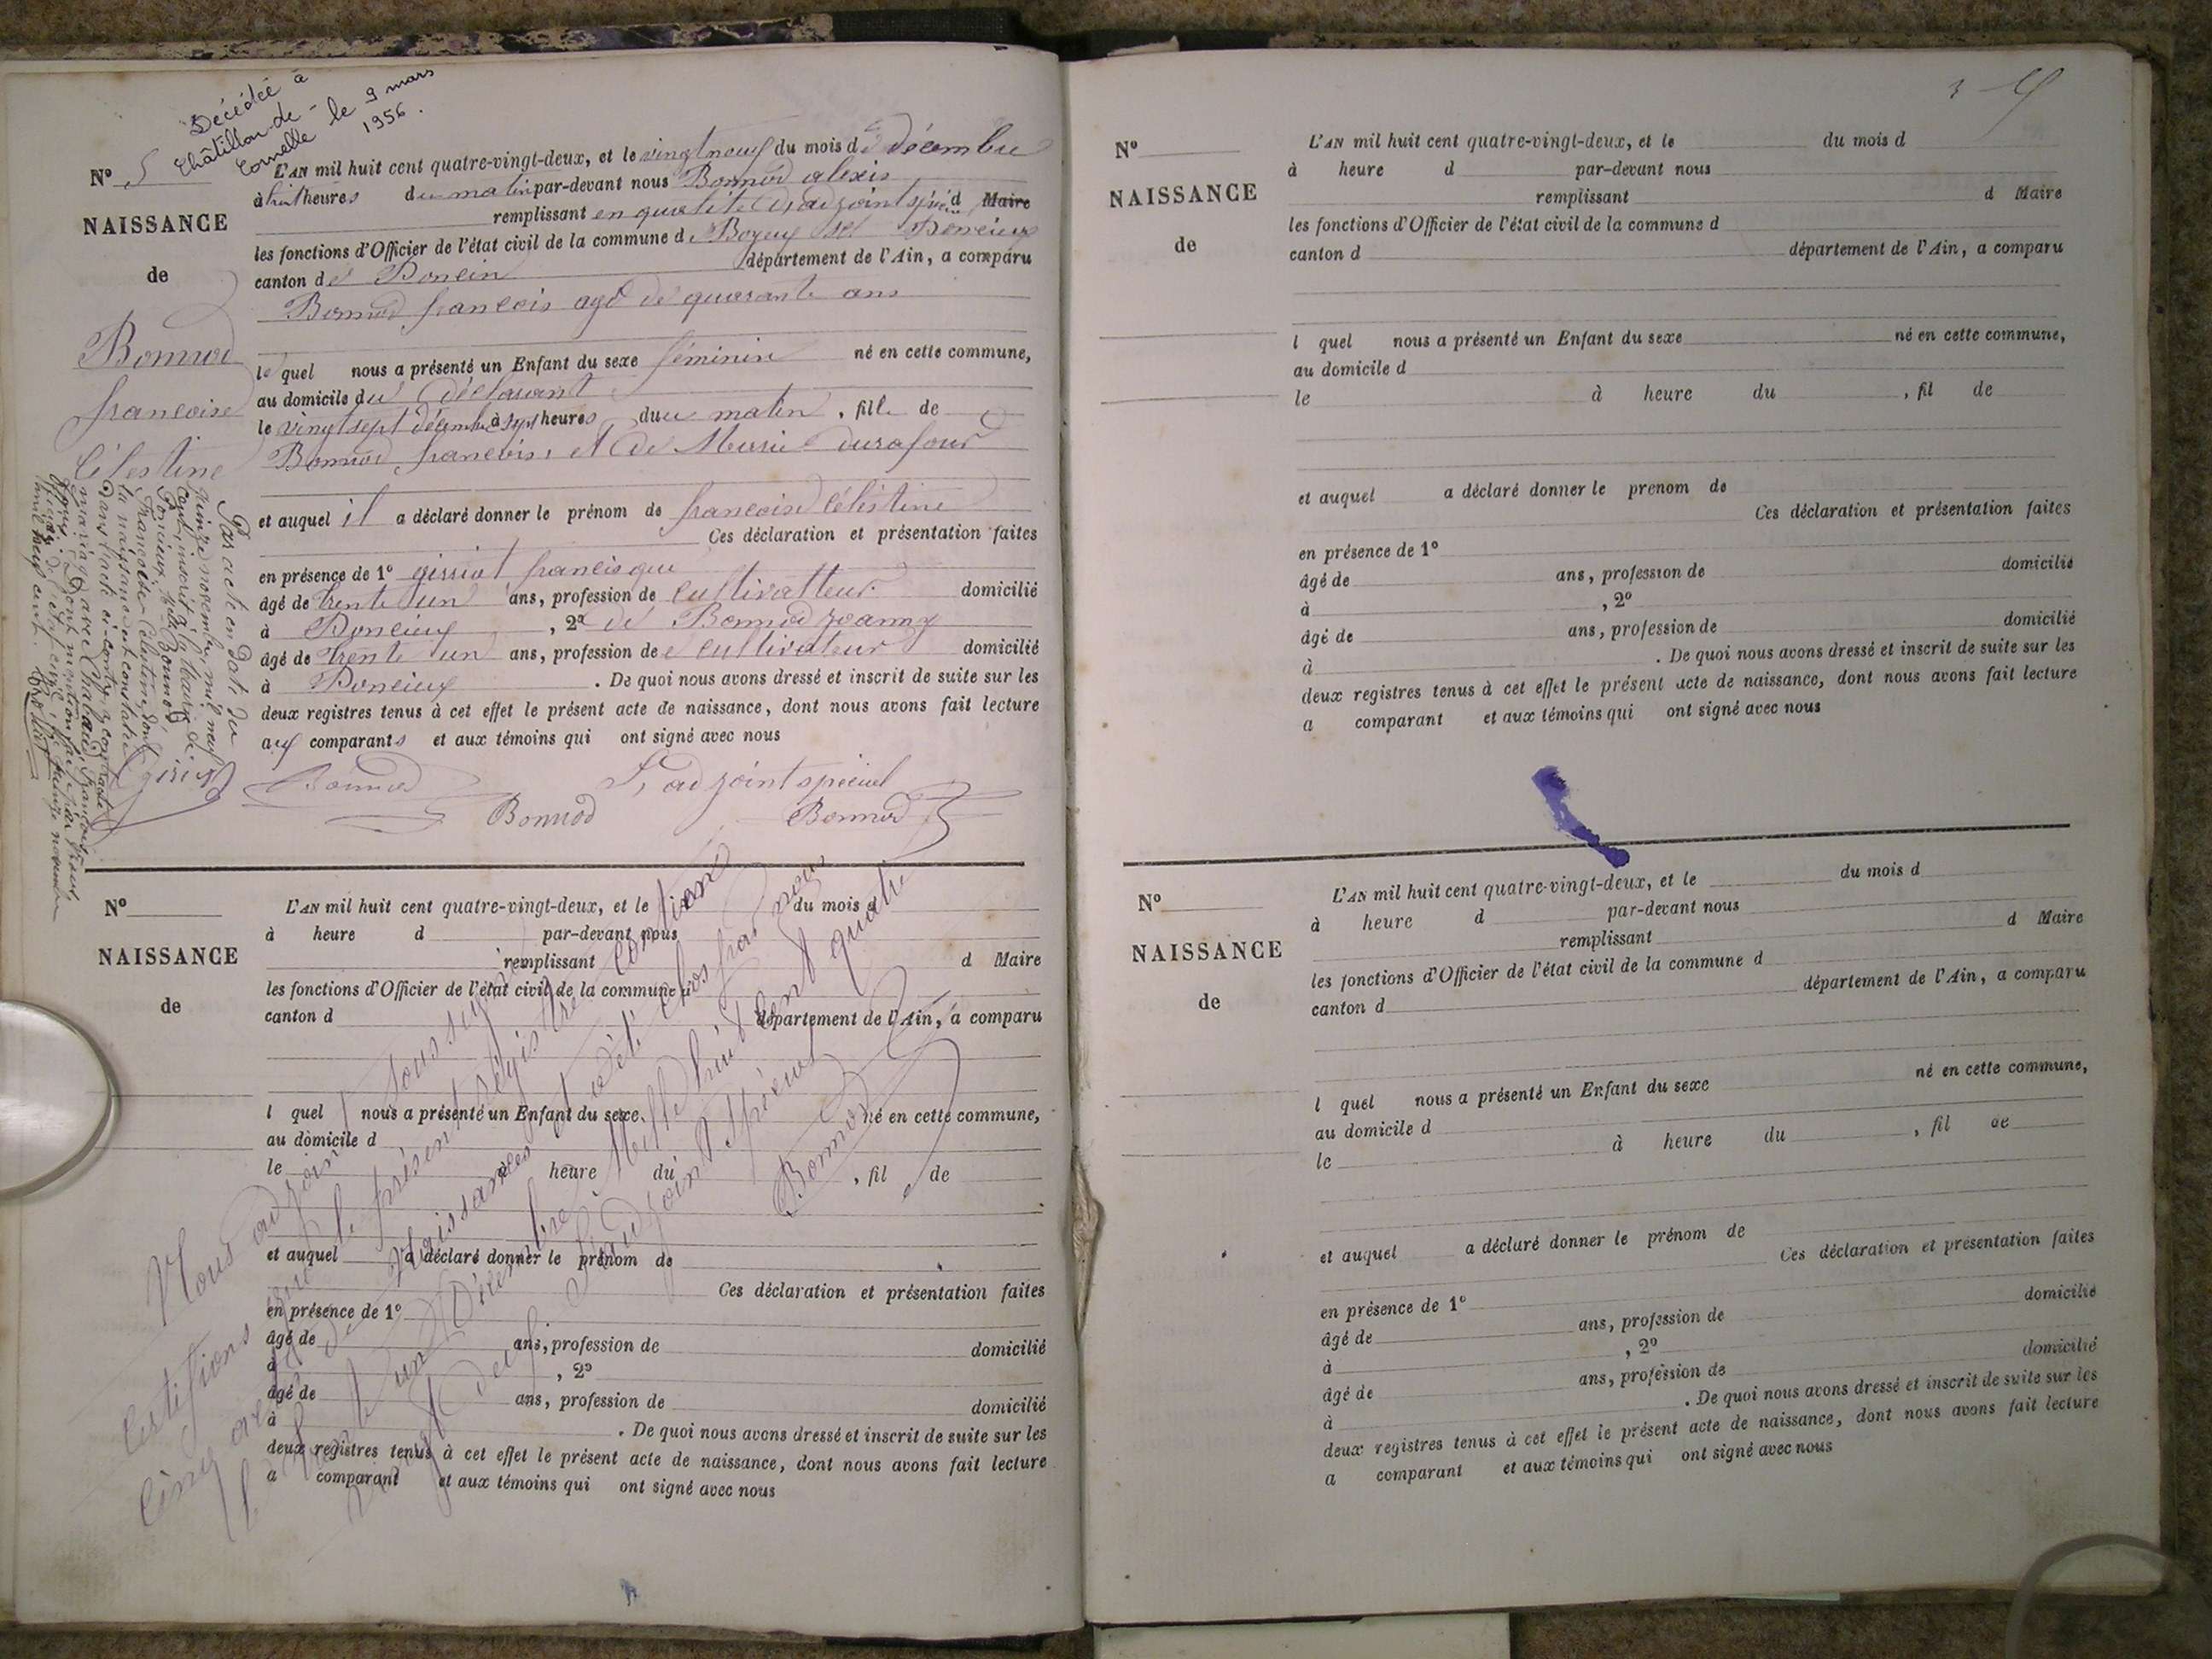 Décédée à
Châtillon-de-
Cornelle le 9 mars
1956.
N° 5
NAISSANCE
de
Bonnod
francoise
Célestine
L'AN mil huit cent quatre-vingt-deux, et le vingt neuf du mois de décembre
à huit heures du matin par-devant nous Bonnod alexis
remplissant en qualité d'adjoint spécial d Maire
les fonctions d'Officier de l'état civil de la commune de Boyeux St
canton de Poncin département de l'Ain, a comparu
Bonnod francois agé de quarante ans
le quel nous a présenté un Enfant du sexe féminin né en cette commune,
au domicile du déclarant
le vingt sept décembre à sept heures du matin, fille de
Bonnod francois et de Marie durafour
et auquel il a déclaré donner le prénom de francoise Célestine
Ces déclaration et présentation faites
en présence de 1° girriat francisque
âgé de trente un ans, profession de cultivatteur domicilié
à Poncieux, 2° de Bonnod Jeanny
âgé de trente un ans, profession de cultivateur domicilié
à Poncieux. De quoi nous avons dressé et inscrit de suite sur les
deux registres tenus à cet effet le présent acte de naissance, dont nous avons fait lecture
aux comparants et aux témoins qui ont signé avec nous
Bonnod L'adjoint spécial
Bonnod Bonnod
Par acte en date du
quinze novembre mil neuf
Bonnod
Françoise Célestine, dont
la naissance est constatée
dans l'acte ci-contre, a contracté
mariage avec
N°
NAISSANCE
de
L'AN mil huit cent quatre-vingt-deux, et le du mois d
à heure d par-devant nous
remplissant d Maire
les fonctions d'Officier de l'état civil de la commune d
canton d département de l'Ain, a comparu
l quel nous a présenté un Enfant du sexe né en cette commune,
au domicile d
le à heure du , fil de
et auquel a déclaré donner le prénom de
Ces déclaration et présentation faites
en présence de 1°
âgé de ans, profession de domicilié
à , 2°
âgé de ans, profession de domicilié
à . De quoi nous avons dressé et inscrit de suite sur les
deux registres tenus à cet effet le présent acte de naissance, dont nous avons fait lecture
a comparant et aux témoins qui ont signé avec nous
Nous adjoint soussigné
certifions que le présent registre contenant
cinq actes de Naissances a été clos par nous
le trente un Décembre Mille huit cent quatre
vingt deux L'adjoint spécial
Bonnod
N°
NAISSANCE
de
L'AN mil huit cent quatre-vingt-deux, et le du mois d
à heure d par-devant nous
remplissant d Maire
les fonctions d'Officier de l'état civil de la commune d
canton d département de l'Ain, a comparu
l quel nous a présenté un Enfant du sexe né en cette commune,
au domicile d
le à heure du , fil de
et auquel a déclaré donner le prenom de
Ces déclaration et présentation faites
en présence de 1°
âgé de ans, profession de domicilié
à , 2°
âgé de ans, profession de domicilié
à . De quoi nous avons dressé et inscrit de suite sur les
deux registres tenus à cet effet le présent acte de naissance, dont nous avons fait lecture
a comparant et aux témoins qui ont signé avec nous
N°
NAISSANCE
de
L'AN mil huit cent quatre-vingt-deux, et le du mois d
à heure d par-devant nous
remplissant d Maire
les fonctions d'Officier de l'état civil de la commune d
canton d département de l'Ain, a comparu
l quel nous a présenté un Enfant du sexe né en cette commune,
au domicile d
le à heure du , fil de
et auquel a déclaré donner le prénom de
Ces déclaration et présentation faites
en présence de 1°
âgé de ans, profession de domicilié
à , 2°
âgé de ans, profession de domicilié
à . De quoi nous avons dressé et inscrit de suite sur les
deux registres tenus à cet effet le présent acte de naissance, dont nous avons fait lecture
a comparant et aux témoins qui ont signé avec nous